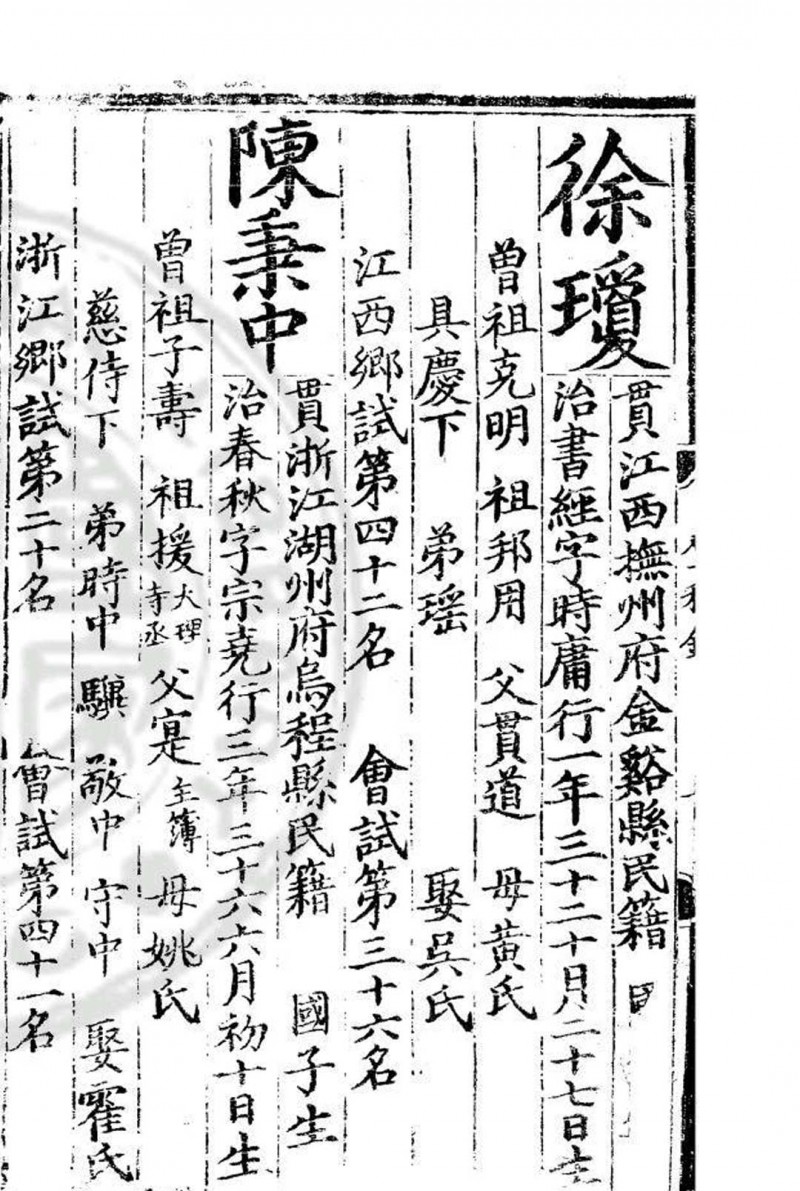 徐瓊
貫江西撫州府金谿縣民籍
治書經字時庸行一年三十二十月二十七日生
曾祖克明 祖邦用 父貫道 母黃氏
具慶下 弟瑶 娶吳氏
江西鄉試第四十二名 會試第三十六名
陳秉中
貫浙江湖州府烏程縣民籍 國子生
治春秋字宗堯行三年三十六六月初十日生
曾祖子壽 祖援大理寺丞 父寔主簿 母姚氏
慈侍下 弟時中 驥 敬中 守中 娶霍氏
浙江鄉試第二十名 會試第四十一名